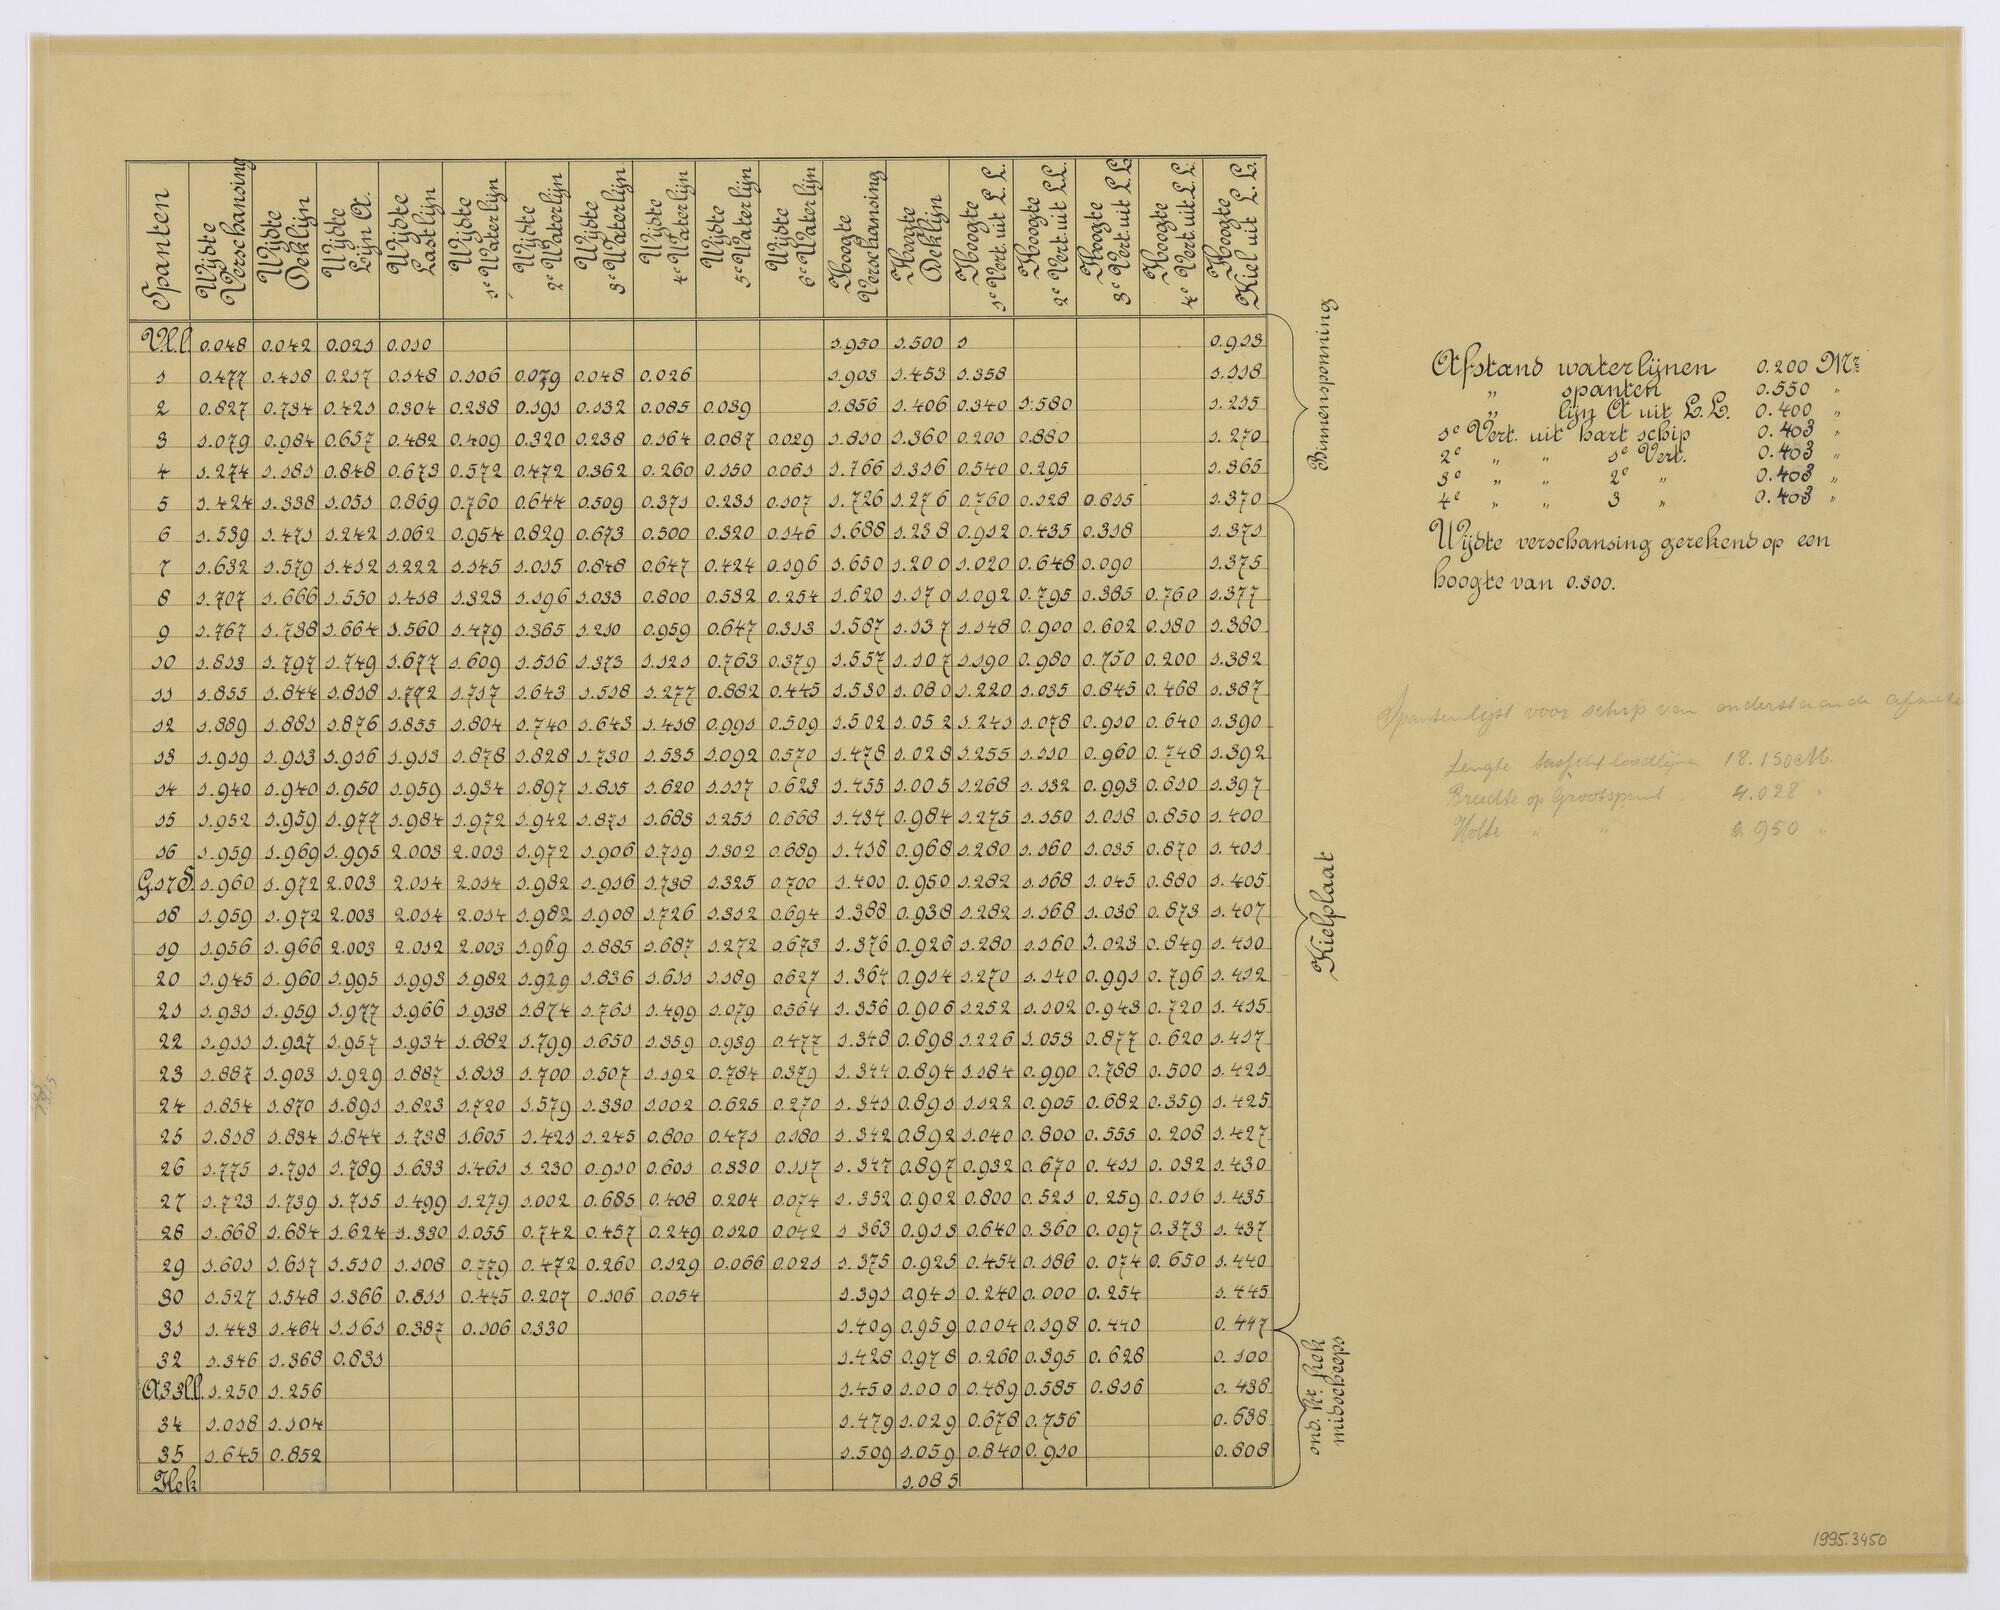 Spanten | Wijdte Verschansing | Wijdte Deklijn | Wijdte Lijn A. | Wijdte Lastlijn | Wijdte 1e Waterlijn | Wijdte 2e Waterlijn | Wijdte 3e Waterlijn | Wijdte 4e Waterlijn | Wijdte 5e Waterlijn | Wijdte 6e Waterlijn | Hoogte Verschansing | Hoogte Deklijn | Hoogte 1e Vert. uit L.L. | Hoogte 2e Vert. uit L.L. | Hoogte 3e Vert. uit L.L. | Hoogte 4e Vert. uit L.L. | Hoogte Kiel uit L.L.
V.l.l. 0.048 0.042 0.021 0.010 1.950 1.500 1 0.913
1 0.477 0.418 0.217 0.148 0.106 0.079 0.048 0.026 1.903 1.453 1.358 1.118
2 0.827 0.734 0.421 0.304 0.238 0.191 0.132 0.085 0.039 1.856 1.406 0.340 1.580 1.215
3 1.079 0.984 0.657 0.482 0.409 0.320 0.238 0.164 0.087 0.029 1.810 1.360 0.200 0.880 1.270
4 1.274 1.181 0.848 0.673 0.572 0.472 0.362 0.260 0.150 0.061 1.766 1.316 0.540 0.295 1.365
5 1.424 1.338 1.051 0.869 0.760 0.644 0.509 0.371 0.231 0.107 1.726 1.276 0.760 0.128 0.815 1.370
6 1.539 1.471 1.242 1.062 0.954 0.829 0.673 0.500 0.320 0.146 1.688 1.238 0.912 0.435 0.318 1.371
7 1.632 1.579 1.412 1.222 1.145 1.015 0.848 0.647 0.424 0.196 1.650 1.200 1.020 0.648 0.090 1.375
8 1.707 1.666 1.550 1.418 1.323 1.196 1.033 0.800 0.532 0.254 1.620 1.170 1.092 0.795 0.385 0.760 1.377
9 1.767 1.738 1.664 1.560 1.479 1.365 1.210 0.959 0.647 0.313 1.587 1.137 1.148 0.900 0.602 0.180 1.380
10 1.813 1.797 1.749 1.677 1.609 1.516 1.373 1.121 0.763 0.379 1.557 1.107 1.190 0.980 0.750 0.200 1.382
11 1.855 1.844 1.818 1.772 1.717 1.643 1.518 1.277 0.882 0.445 1.530 1.080 1.220 1.035 0.845 0.468 1.387
12 1.889 1.881 1.876 1.855 1.804 1.740 1.643 1.418 0.991 0.509 1.502 1.052 1.241 1.078 0.910 0.640 1.390
13 1.919 1.913 1.916 1.913 1.878 1.828 1.730 1.535 1.092 0.570 1.478 1.028 1.255 1.110 0.960 0.748 1.392
14 1.940 1.940 1.950 1.959 1.934 1.897 1.815 1.620 1.117 0.623 1.455 1.005 1.268 1.132 0.993 0.810 1.397
15 1.952 1.959 1.977 1.984 1.972 1.942 1.871 1.683 1.251 0.668 1.434 0.984 1.275 1.150 1.018 0.850 1.400
16 1.959 1.969 1.995 2.003 2.003 1.972 1.906 1.719 1.302 0.689 1.418 0.968 1.280 1.160 1.035 0.870 1.401
G.17S. 1.960 1.972 2.003 2.014 2.014 1.982 1.916 1.738 1.325 0.700 1.400 0.950 1.282 1.168 1.045 0.880 1.405
18 1.959 1.972 2.003 2.014 2.014 1.982 1.908 1.726 1.312 0.694 1.388 0.938 1.282 1.168 1.038 0.873 1.407
19 1.956 1.966 2.003 2.012 2.003 1.969 1.885 1.687 1.272 0.673 1.376 0.926 1.280 1.160 1.023 0.849 1.410
20 1.945 1.960 1.995 1.993 1.982 1.929 1.836 1.611 1.189 0.627 1.364 0.914 1.270 1.140 0.991 0.796 1.412
21 1.931 1.959 1.977 1.966 1.938 1.874 1.761 1.499 1.079 0.564 1.356 0.906 1.252 1.102 0.943 0.720 1.415
22 1.911 1.927 1.957 1.934 1.882 1.799 1.650 1.359 0.939 0.477 1.348 0.898 1.226 1.053 0.877 0.620 1.417
23 1.887 1.903 1.929 1.887 1.813 1.700 1.507 1.192 0.784 0.379 1.344 0.894 1.184 0.990 0.788 0.500 1.421
24 1.854 1.870 1.891 1.823 1.720 1.579 1.330 1.002 0.625 0.270 1.341 0.891 1.122 0.905 0.682 0.359 1.425
25 1.818 1.834 1.844 1.738 1.605 1.421 1.245 0.800 0.471 0.180 1.342 0.892 1.040 0.800 0.555 0.208 1.427
26 1.775 1.791 1.789 1.633 1.461 1.230 0.910 0.601 0.330 0.117 1.347 0.897 0.932 0.670 0.411 0.032 1.430
27 1.723 1.739 1.715 1.499 1.279 1.002 0.685 0.408 0.204 0.074 1.352 0.902 0.800 0.521 0.259 0.016 1.435
28 1.668 1.684 1.624 1.330 1.055 0.742 0.457 0.249 0.120 0.042 1 363 0.913 0.640 0.360 0.097 0.373 1.437
29 1.601 1.617 1.510 1.108 0.779 0.472 0.260 0.129 0.066 0.021 1.375 0.925 0.454 0.186 0.074 0.650 1.440
30 1.527 1.548 1.366 0.811 0.445 0.207 0.106 0.054 1.391 0.941 0.240 0.000 0.254 1.445
31 1.443 1.464 1.161 0.387 0.106 0.330 1.409 0.959 0.004 0.198 0.440 0.447
32 1.346 1.368 0.831 1.428 0.978 0.260 0.395 0.628 0.100
A33l.l. 1.250 1.256 1.450 1.000 0.489 0.585 0.816 0.438
34 1.018 1.104 1.479 1.029 0.678 0.756 0.638
35 1.645 0.852 1.509 1.059 0.840 0.910 0.808
Hek 1.085
Binnensponning
Kielplaat
ond. kt. hek
midscheeps
Afstand waterlijnen 0.200 Mr.
" spanten 0.550 "
" lijn A uit L.L. 0.400 "
1e Vert. uit hart schip 0.403 "
2e " " 1e Vert. 0.403 "
3e " " 2e " 0.403 "
4e " " 3 " 0.403 "
Wijdte verschansing gerekend op een
hoogte van 0.300.
Spantenlijst voor schip van onderstaande afmete
Lengte loodlijnen 18.150 M.
Breedte op Grootspant 4.028 "
Holte " " 1.950 "
1995.3450